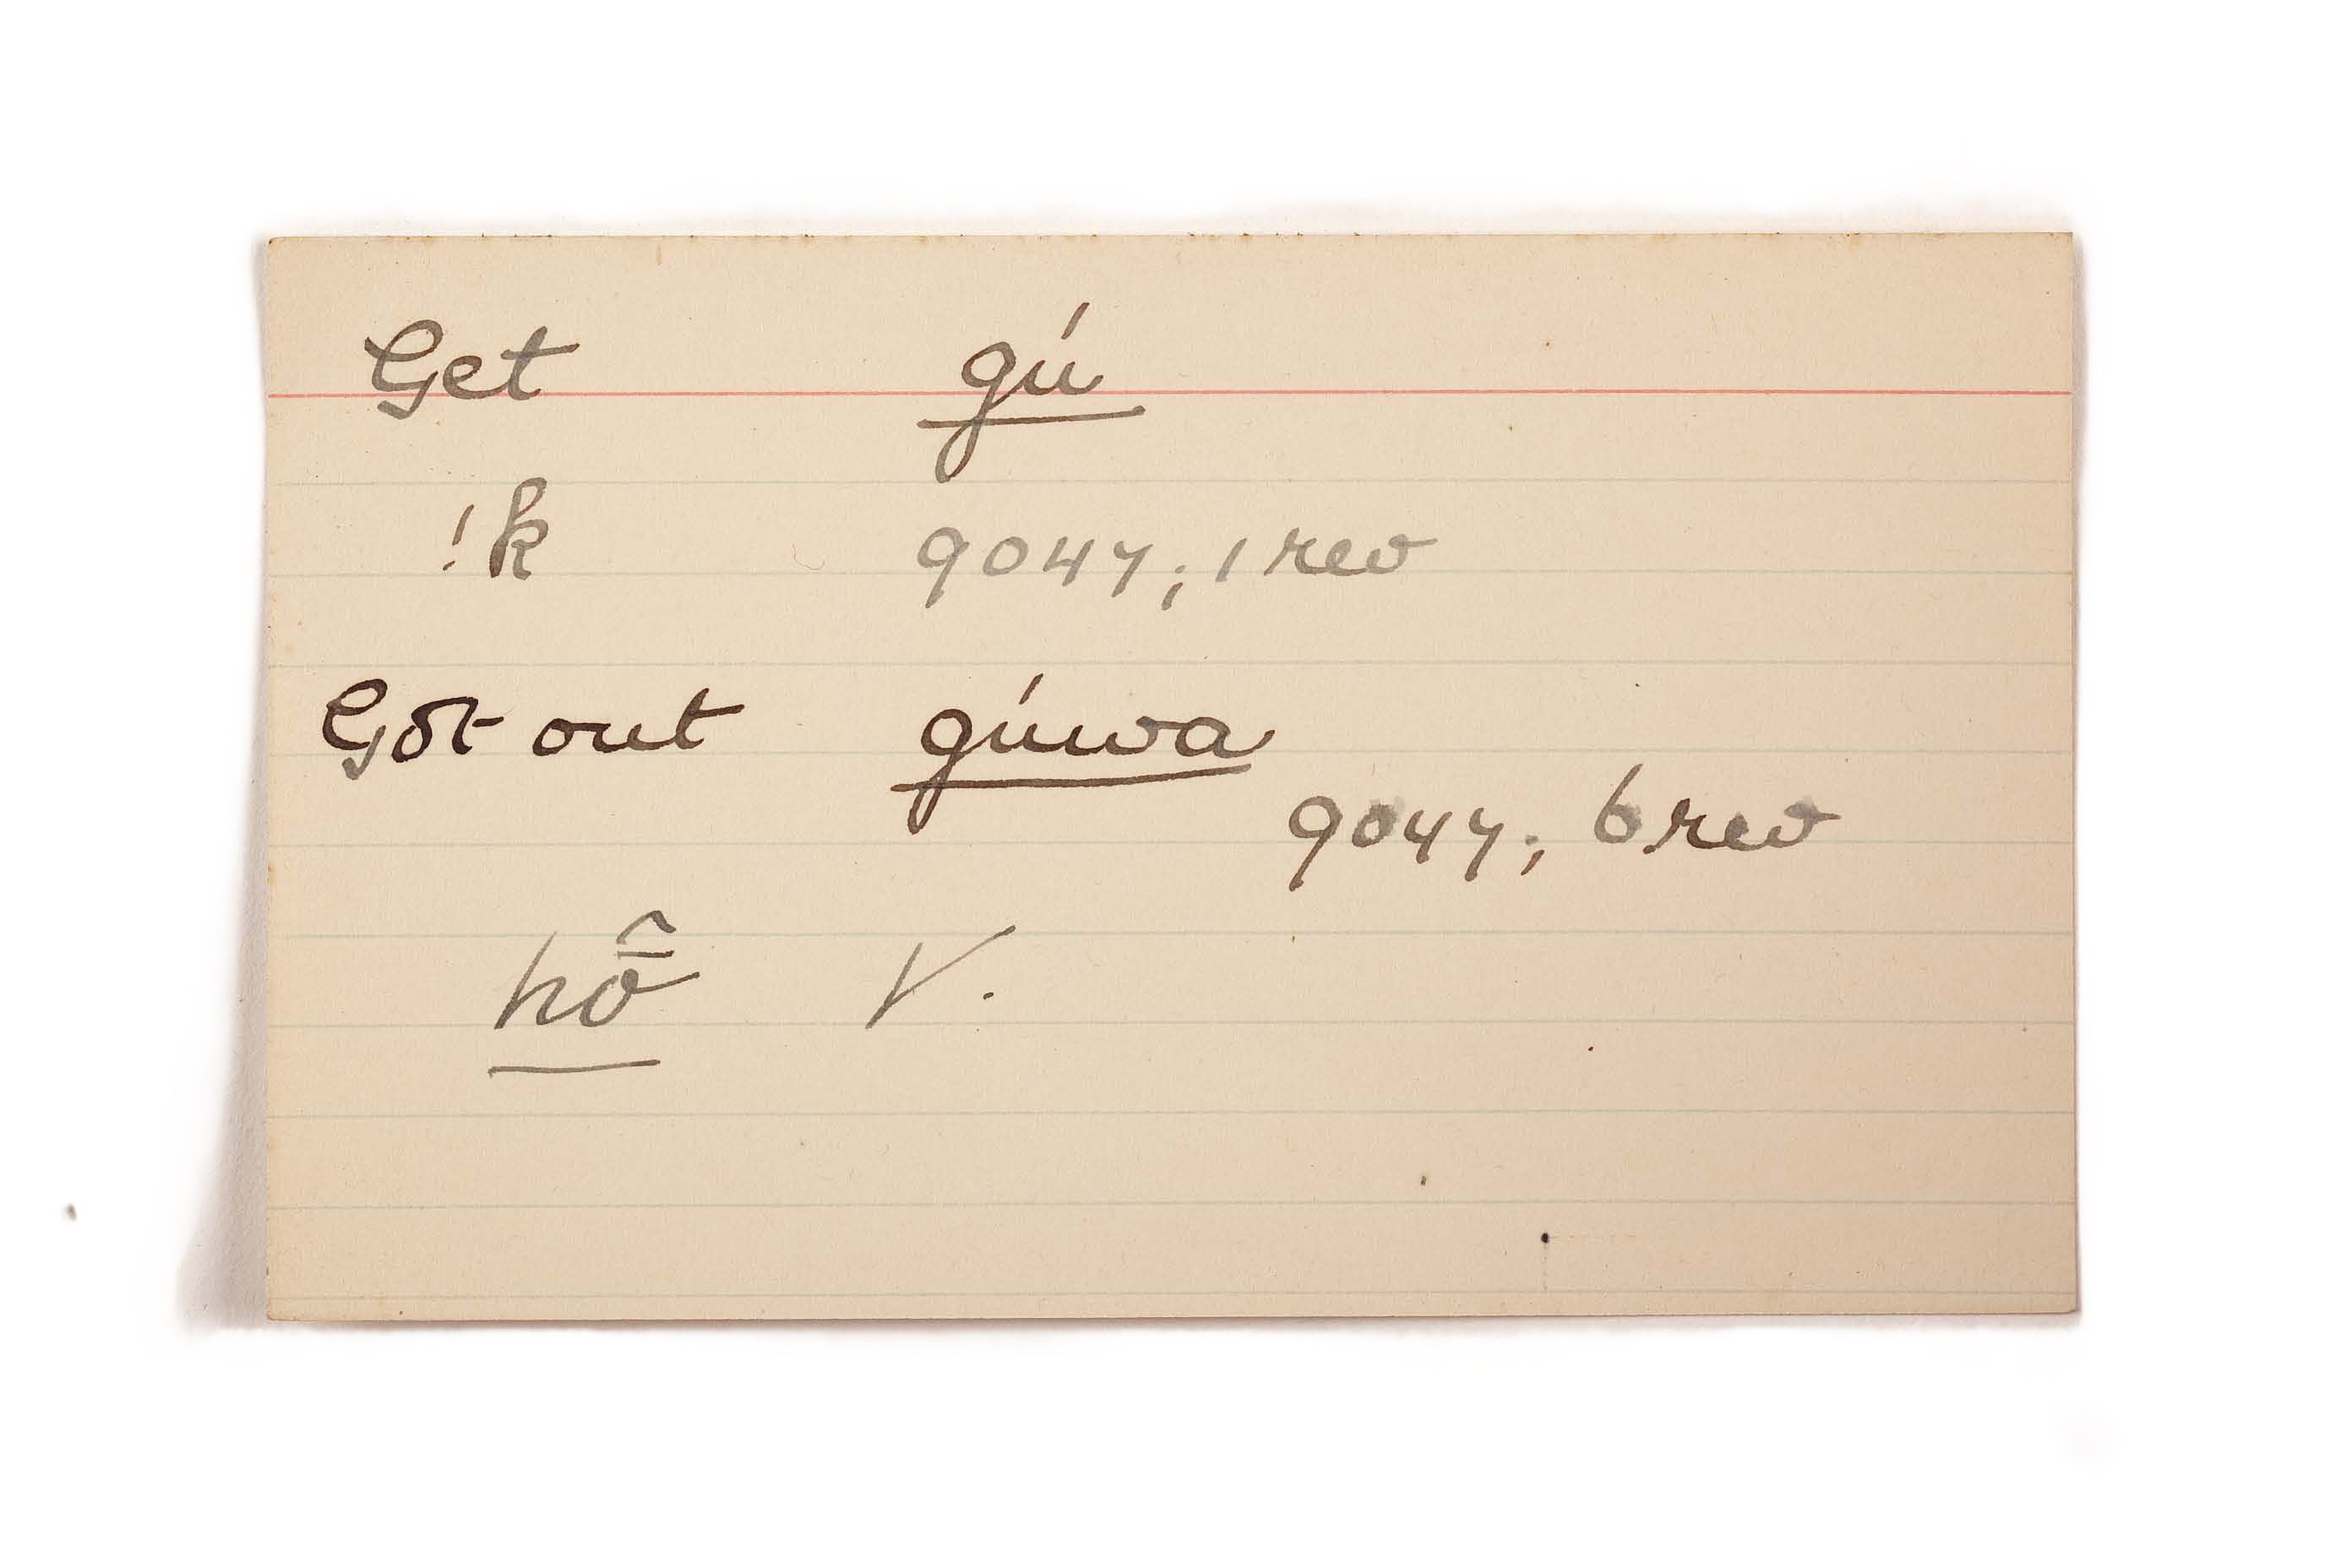 Get gú
!k 9047; 1 rev
Got out gúwa
9047; 6 rev
hō̂ V.